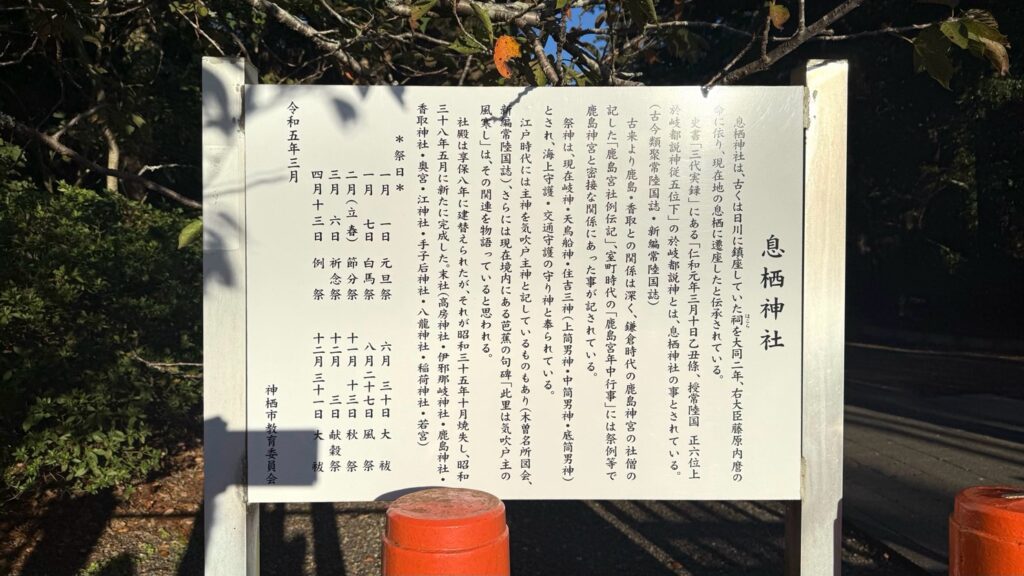 息栖神社
息栖神社は、古くは日川に鎮座していた祠を大同二年、右大臣藤原内麿の
命に依り、現在地の息栖に遷座したと伝承されている。
史書「三代実録」にある「仁和元年三月十日乙丑條、授常陸国 正六位上
於岐都説神従五位下」の於岐都説神とは、息栖神社の事とされている。
(古今類聚常陸国誌・新編常陸国誌)
古来より鹿島・香取との関係は深く、鎌倉時代の鹿島神宮の社僧の
記した「鹿島宮社例伝記」、室町時代の「鹿島宮年中行事」には祭例等で
鹿島神宮と密接な関係にあった事が記されている。
祭神は 現在岐神・天鳥船神・住吉三神(上筒男神・中筒男神・底筒男神)
とされ、海上守護・交通守護の守り神と奉られている。
江戸時代には主神を気吹戸主神と記しているものもあり(木曽名所図会、
新編常陸国誌)、さらには現在境内にある芭蕉の句碑「此里は気吹戸主の
風寒し」は、その関連を物語っていると思われる。
社殿は享保八年に建替えられたが、それが昭和三十五年十月焼失し、昭和
三十八年五月に新たに完成した。末社(高房神社・伊邪那岐神社・鹿島神社・
香取神社・奥宮・江神社・手子后神社・八龍神社・稲荷神社・若宮)
*祭日*
一月 一日 元旦祭 六月 三十日 大祓
一月 七日 白馬祭 八月二十七日 風祭
二月(立春) 節分祭 十一月 十三日 秋祭
三月 六日 祈念祭 十二月 三日 献穀祭
四月十三日 例祭 十二月三十一日 大祓
令和五年三月
神栖市教育委員会